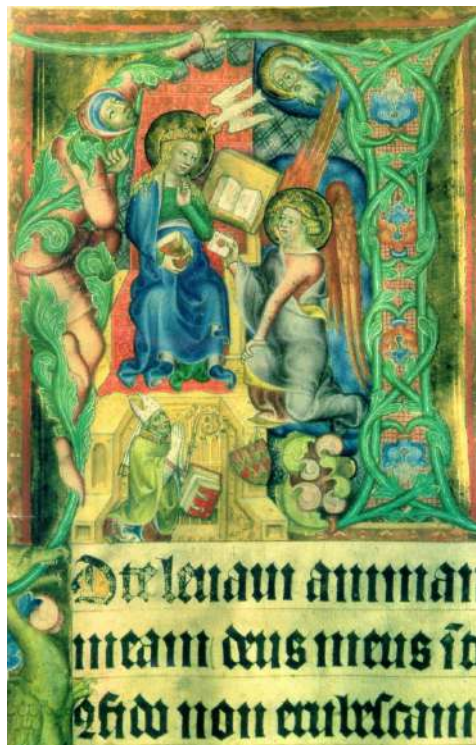 A
D te leuaui animam
meam deus meus ī
ꝯfido non erubescam